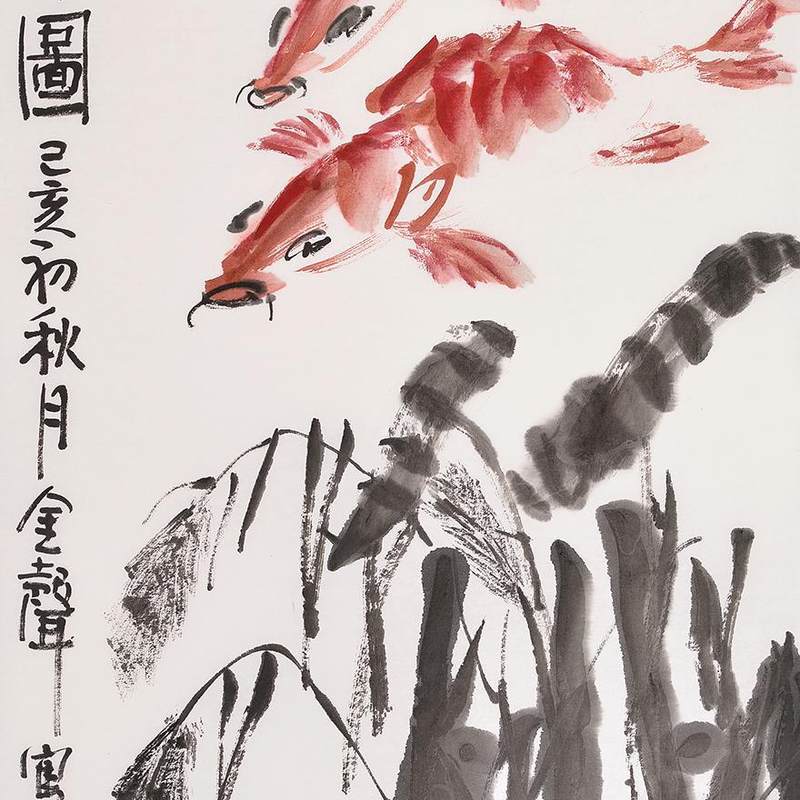 圖己亥初秋月金聲寫